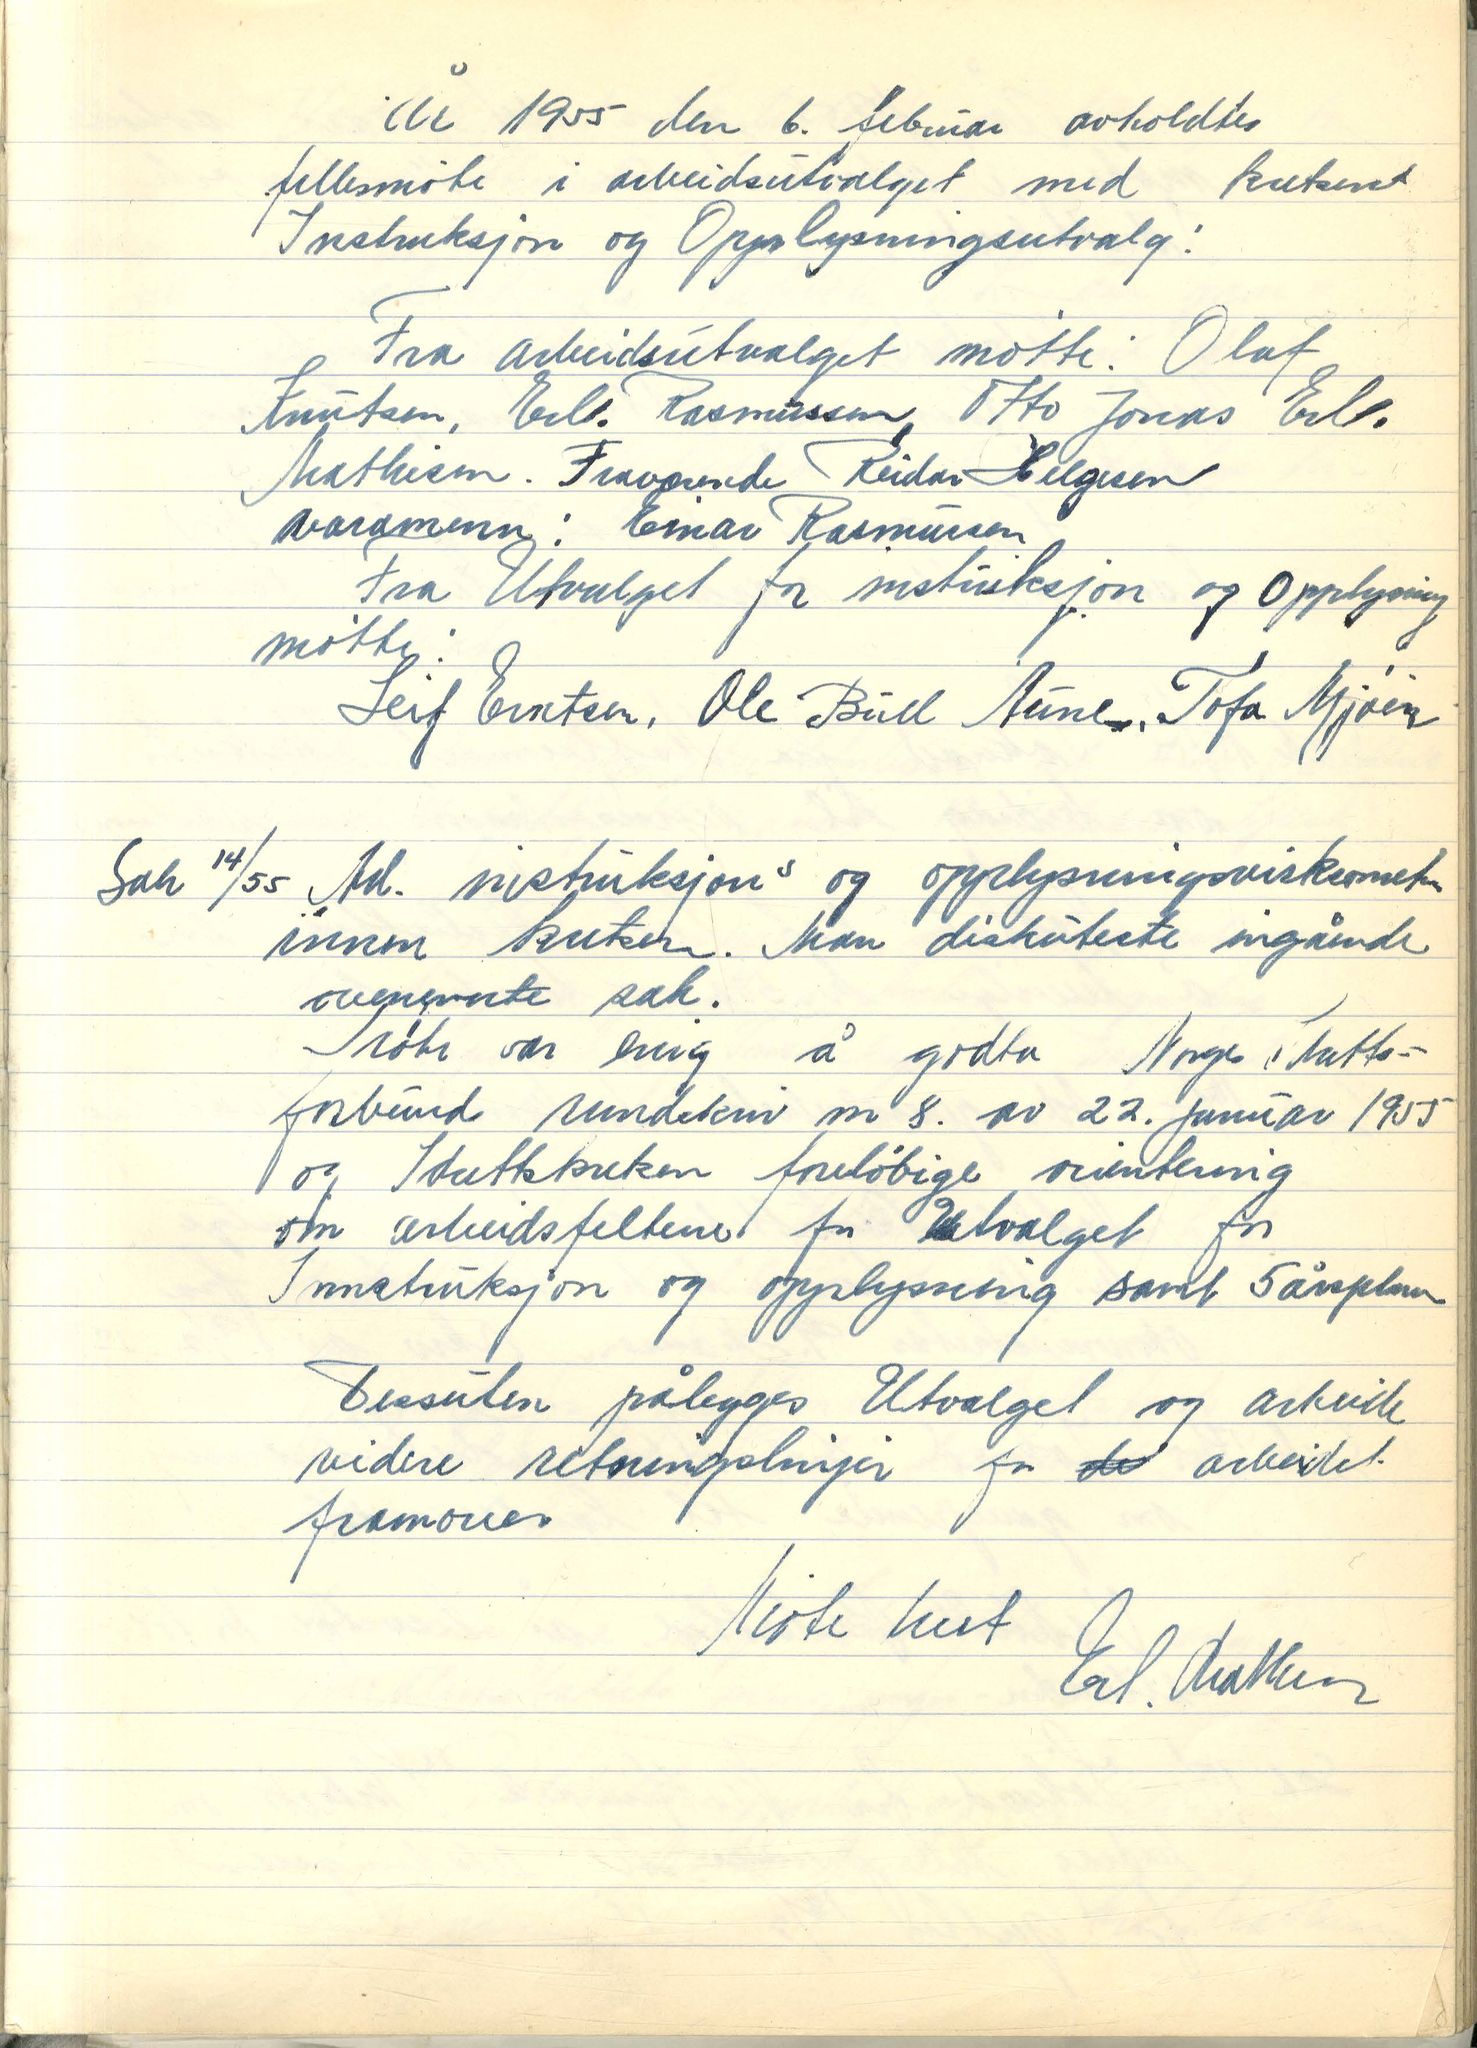 År 1955 den 6. februar avholdtes
fellesmøte i arbeidsutvalget med kretsens
Instruksjon og Opplysningsutvalg:
Fra arbeidsutvalget møtte: Olaf
Knutsen, Erl. Rasmussen, Otto Jonas Erl.
Mathisen. Fraværende Reidar Helgesen
varamenn: Einar Rasmussen
Fra Utvalget for instruksjon og Opplysning
møtte:
Leif Erntsen, Ole Bull Aune, Tofa Mjøen
Sak 14/55 Ad. instruksjons og opplysningsvirksomheten
innen kretsen. Man diskuterte ingående
ovenevnte sak.
Møte var enig å godta Norges Idretts-
forbund rundskriv nr 8. av 22. januar 1955
og Idrettskretsen foreløbige orientering
om arbeidsfeltene for Utvalget for
Innstruksjon og opplysning samt 5 årsplan
Dessuten pålegges Utvalget og arbeide
videre retningslinjer for de arbeidet
framover
Møte hevet
Erl. Mathisen